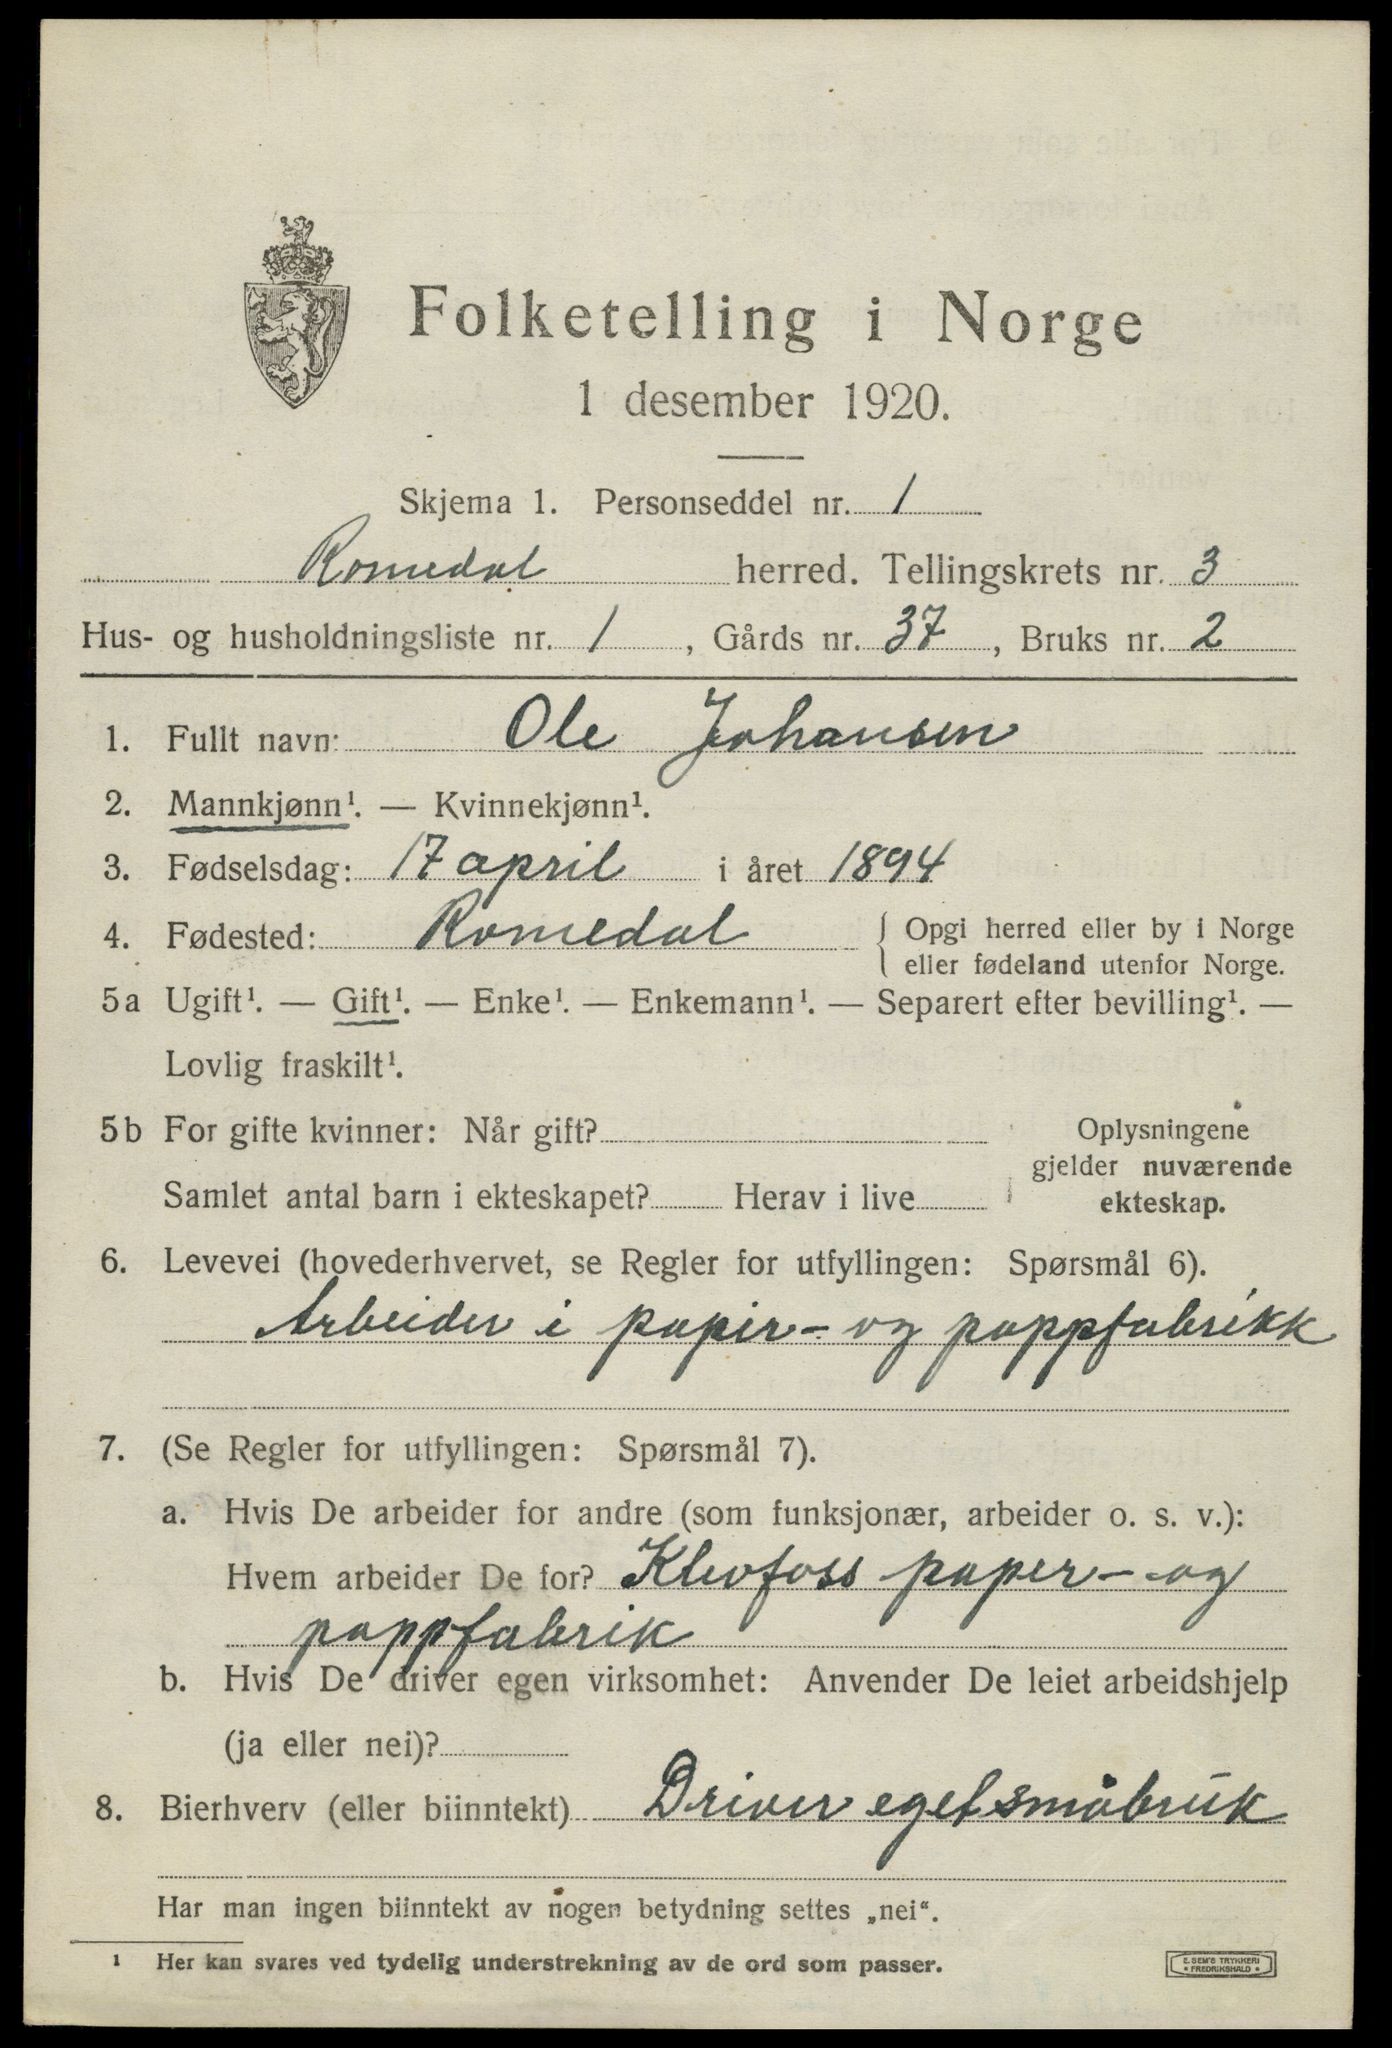 Folketelling i Norge
1 desember 1920.
Skjema 1. Personseddel nr. 1
Romedal herred. Tellingskrets nr. 3
Hus- og husholdningsliste nr. 1, Gårds nr. 37, Bruks nr. 2
1. Fullt navn: Ole Johansen
2. Mannkjønn¹. — Kvinnekjønn¹.
3. Fødselsdag: 17 april i året 1894
4. Fødested: Romedal { Opgi herred eller by i Norge
eller fødeland utenfor Norge.
5a Ugift¹. — Gift¹. — Enke¹. — Enkemann¹. — Separert efter bevilling¹. —
Lovlig fraskilt¹.
5b For gifte kvinner: Når gift? Oplysningene
gjelder nuværende
Samlet antal barn i ekteskapet? Herav i live ekteskap.
6. Levevei (hovederhvervet, se Regler for utfyllingen: Spørsmål 6).
Arbeider i papir- og pappfabrikk
7. (Se Regler for utfyllingen: Spørsmål 7).
a. Hvis De arbeider for andre (som funksjonær, arbeider o. s. v.):
Hvem arbeider De for? Klevfoss paper- og
pappfabrik
b. Hvis De driver egen virksomhet: Anvender De leiet arbeidshjelp
(ja eller nei)?
8. Bierhverv (eller biinntekt) Driver eget småbruk
Har man ingen biinntekt av nogen betydning settes „nei“.
¹ Her kan svares ved tydelig understrekning av de ord som passer.
E. SEM'S TRYKKERI
* FREDRIKSHALD *